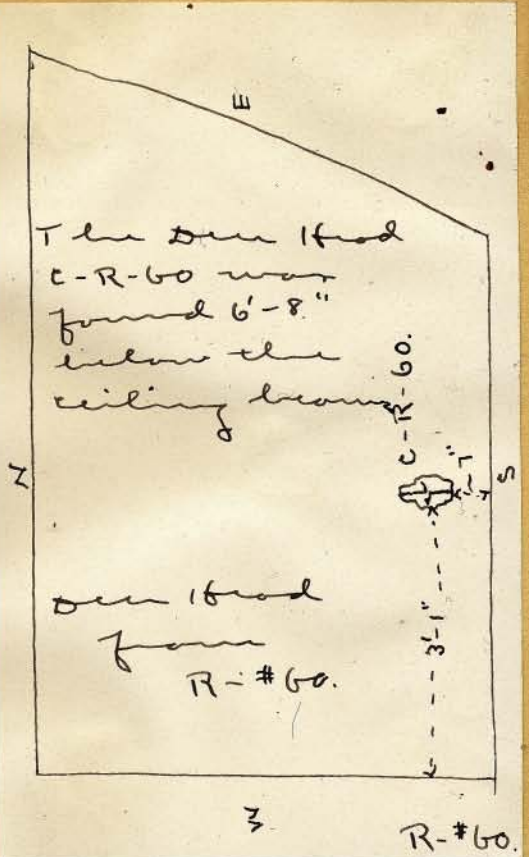 E
The Deer Head
C-R-60 was
found 6'-8"
below the
ceiling beams
C-R-60.
N
7"
S
Deer Head
from
R-#60.
3'-1"
W
R-#60.